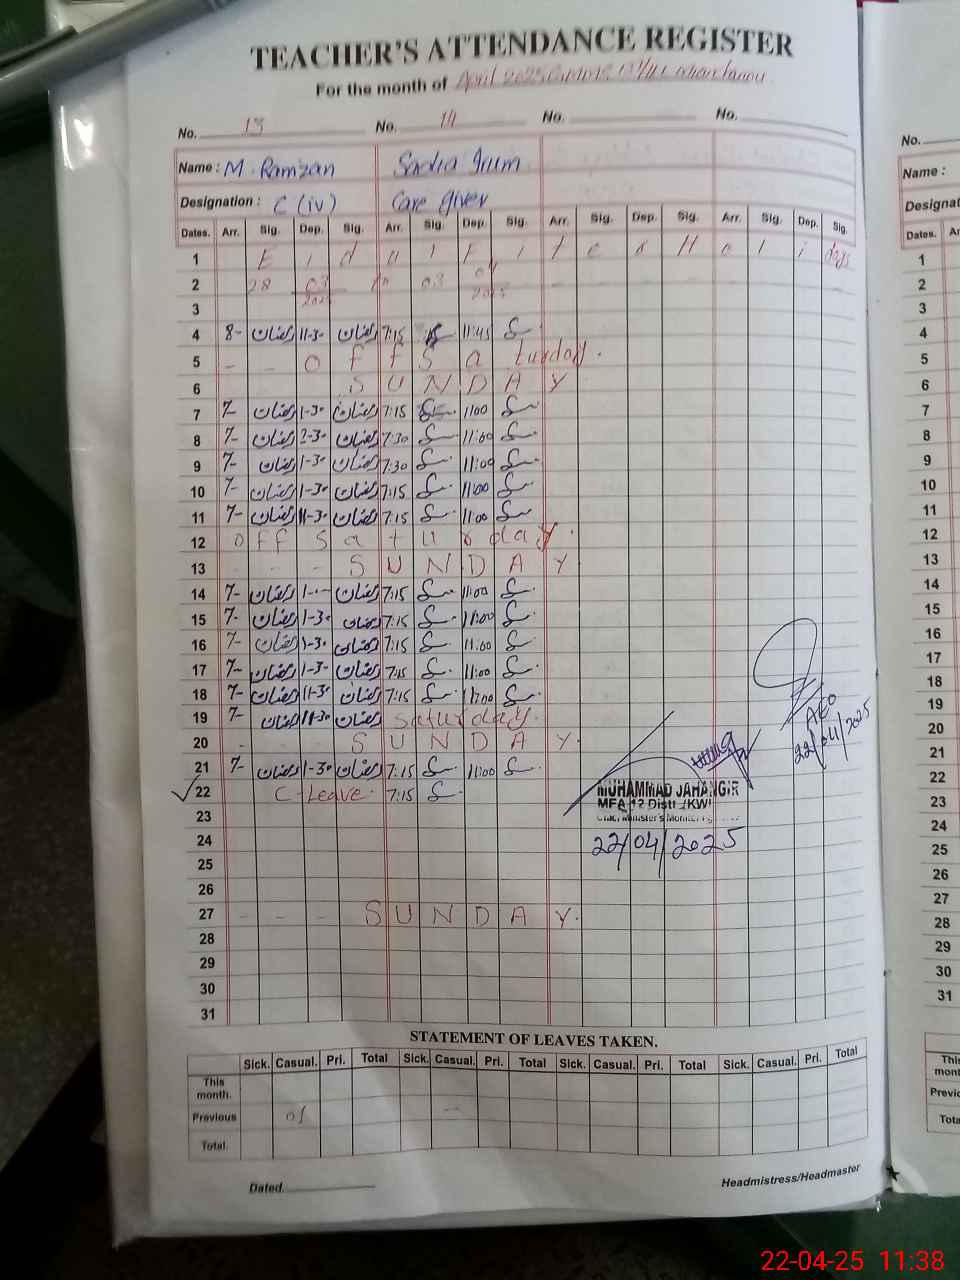 TEACHER'S ATTENDANCE REGISTER
For the month of April 2025
No. 13 No. 14 No. No.
Name : M. Ramzan Sadia Irum
Designation : C (iv) Care giver
Dates. Arr. Sig. Dep. Sig. Arr. Sig. Dep. Sig. Arr. Sig. Dep. Sig. Arr. Sig. Dep. Sig.
1 E i d u l F i t e r H o l i days
2 28 03 2025 to 03 04 2025
3
4 8- رمضان 11-30 رمضان 7:15 11:45
5 - - O f f S a turday.
6 S U N D A Y
7 7- رمضان 1-30 رمضان 7:15 11:00
8 7- رمضان 2-30 رمضان 7:30 11:00
9 7- رمضان 1-30 رمضان 7:30 11:00
10 7- رمضان 1-30 رمضان 7:15 11:00
11 7- رمضان 11-30 رمضان 7:15 11:00
12 o f f S a t u r d a y.
13 - - - S U N D A Y
14 7- رمضان رمضان 7:15 11:00
15 7- رمضان 1-30 رمضان 7:15 11:00
16 7- رمضان 1-30 رمضان 7:15 11:00
17 7- رمضان 1-30 رمضان 7:15 11:00
18 7- رمضان 11-30 رمضان 7:15 11:00
19 7- رمضان 11-30 رمضان Saturday.
20 - - - S U N D A Y.
21 7- رمضان 1-30 رمضان 7:15 11:00
22 C-Leave. 7:15
AEO
22/04/2025
MUHAMMAD JAHANGIR
MEA-12 Distt.
22/04/2025
23
24
25
26
27 - - - S U N D A Y.
28
29
30
31
STATEMENT OF LEAVES TAKEN.
Sick. Casual. Pri. Total Sick. Casual. Pri. Total Sick. Casual. Pri. Total Sick. Casual. Pri. Total
This month.
Previous 01 -
Total.
Dated.
Headmistress/Headmaster
No.
Name :
Designat
Dates. Ar
1
2
3
4
5
6
7
8
9
10
11
12
13
14
15
16
17
18
19
20
21
22
23
24
25
26
27
28
29
30
31
This
mont
Previo
Tota
22-04-25 11:38